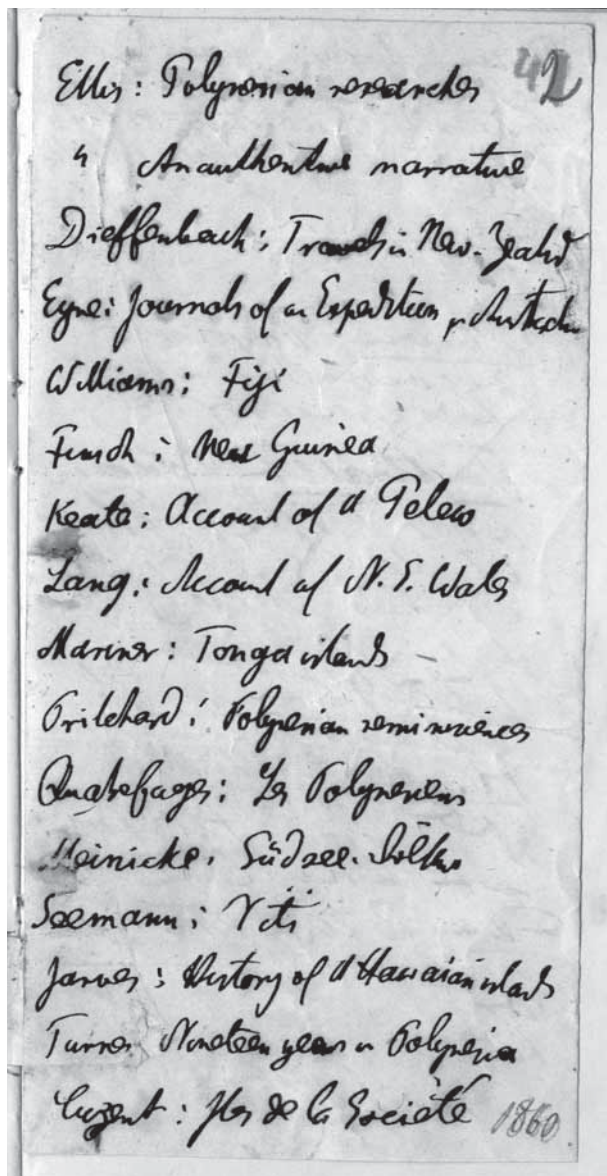 42
Ellis: Polynesian researches
" An authentive narrative
Dieffenbach: Travels in New-Zeald
Eyre: Journals of an Expedition
Williams: Fiji
Finsch: New Guinea
Keate: Account of d Pelew
Lang: Account of N. S. Wales
Mariner: Tonga islands
Pritchard: Polynesian reminiscences
Quatrefages: Les Polynesiens
Meinicke. Südsee-Völker
Seemann: Viti
Jarves: History of d Hawaian islands
Turner Nineteen years in Polynesia
Cuzent: Iles de la Société 1860